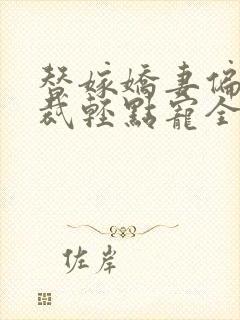 替嫁嬌妻偏
裁輕點寵全
佐岸